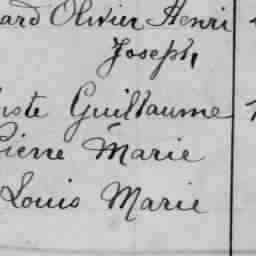 ard Olivier Henri
Joseph,
uste Guillaume
Pierre Marie
Louis Marie